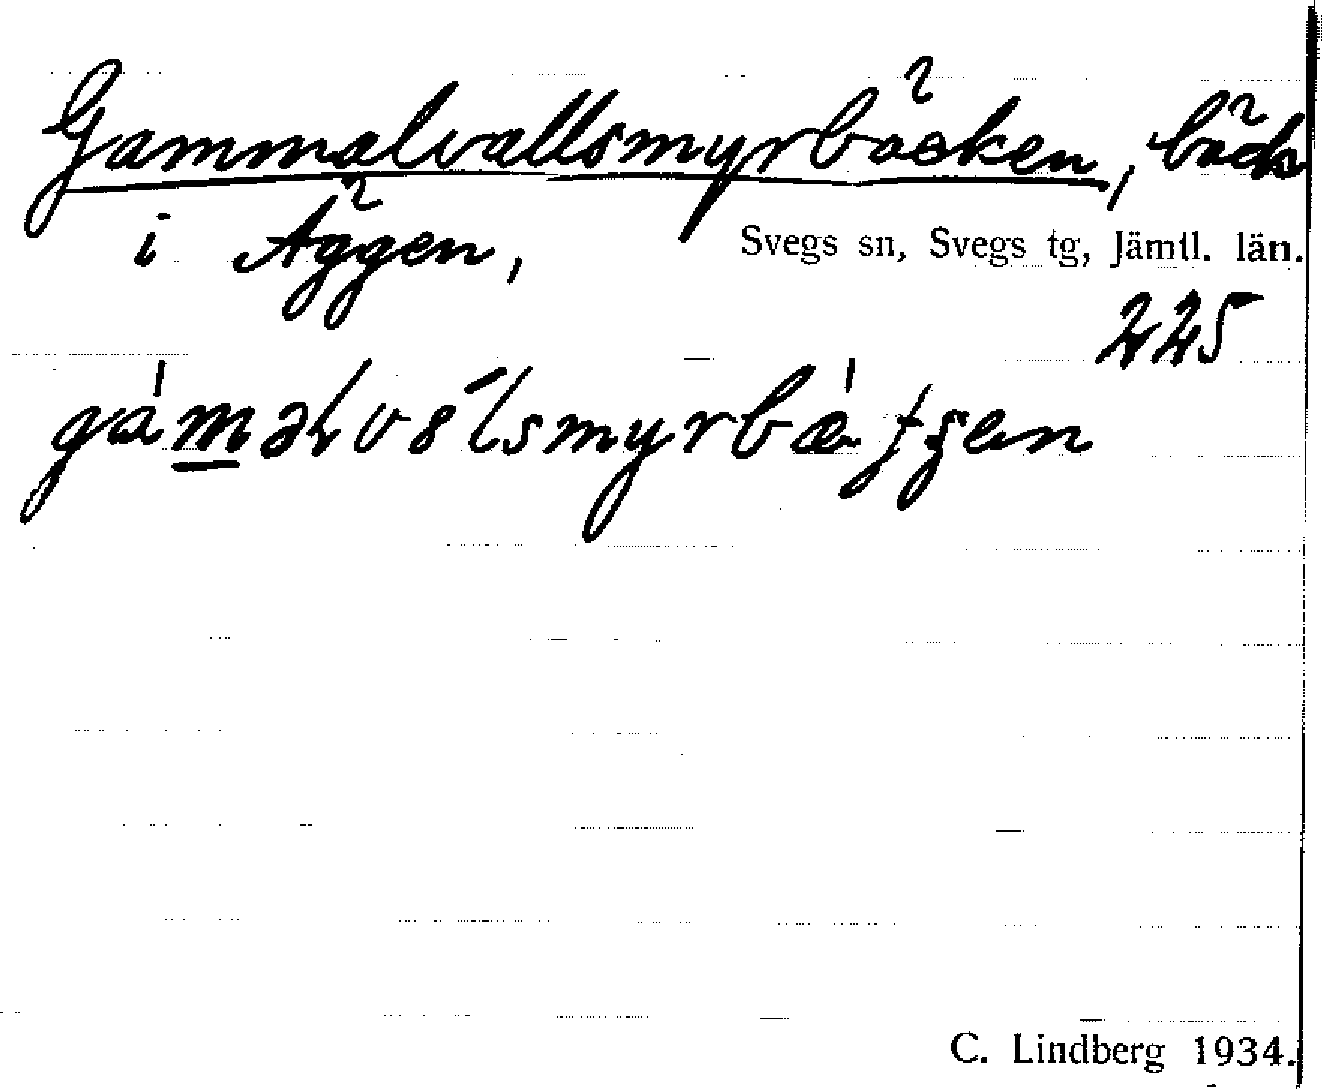 Gammalvallsmyrbäcken, bäck
i Äggen,
Svegs sn, Svegs tg, Jämtl. län.
225
C. Lindberg 1934.